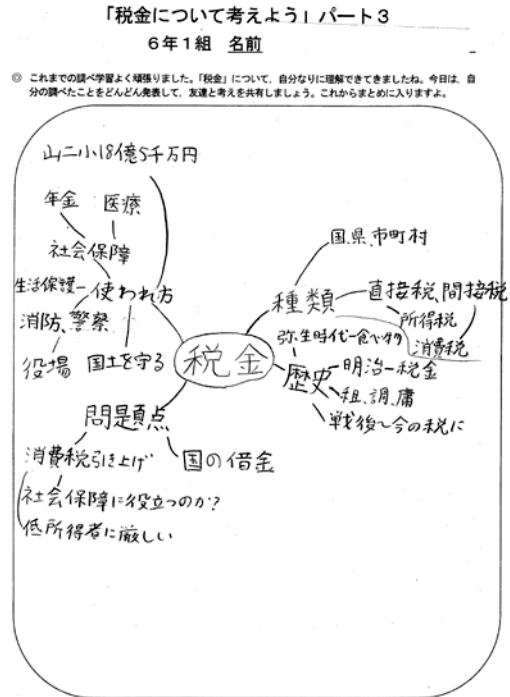 「税金について考えよう」パート3
6年1組 名前
◎ これまでの調べ学習よく頑張りました。「税金」について，自分なりに理解できてきましたね。今日は，自
分の調べたことをどんどん発表して，友達と考えを共有しましょう。これからまとめに入りますよ。
山二小18億5千万円
年金
医療
社会保障
生活保護
使われ方
消防、警察
役場
国土を守る
税金
国、県、市町村
種類
直接税、間接税
所得税
消費税
弥生時代ー食べ物
歴史
明治ー税金
租、調、庸
戦後〜今の税に
問題点
消費税引き上げ
国の借金
社会保障に役立つのか?
低所得者に厳しい